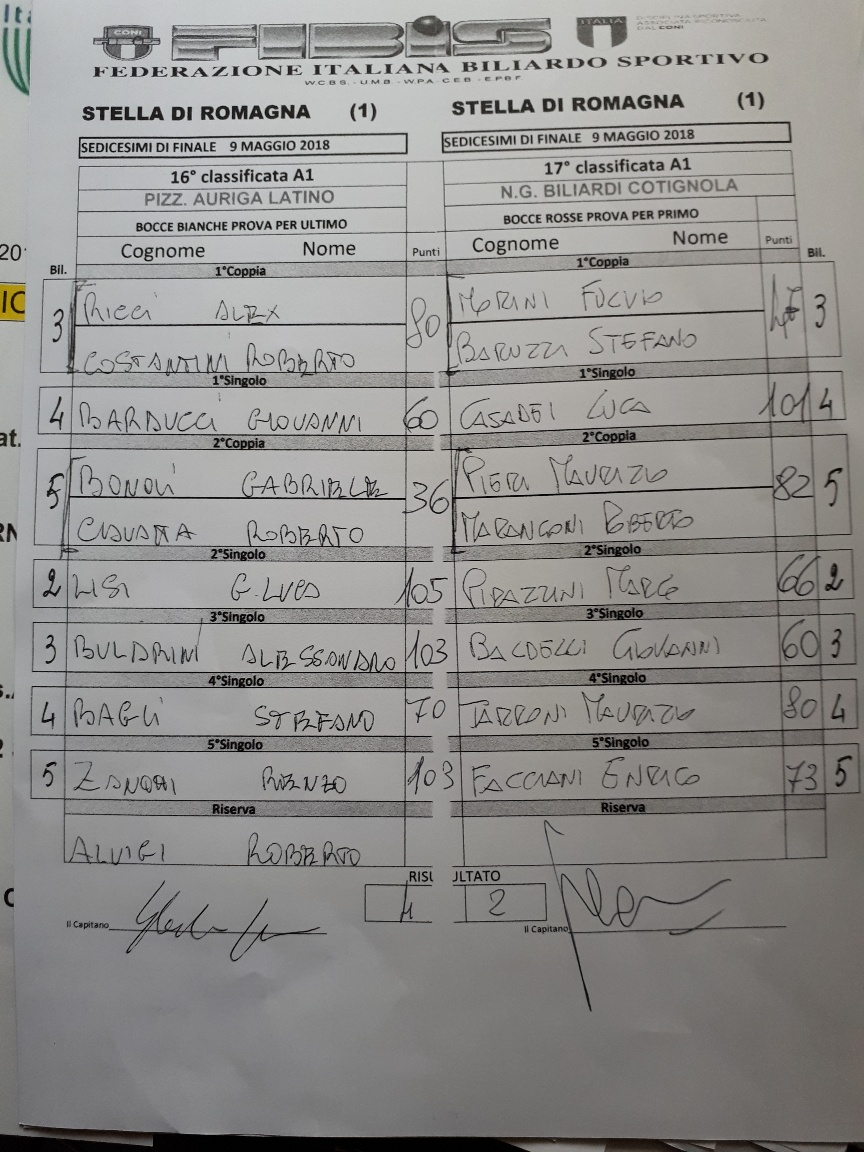 CONI
FIBiS
ITALIA
FEDERAZIONE ITALIANA BILIARDO SPORTIVO
W.C.B.S. - U.M.B. - W.P.A. - C.E.B. - E.P.B.F.
STELLA DI ROMAGNA (1) STELLA DI ROMAGNA (1)
SEDICESIMI DI FINALE 9 MAGGIO 2018 SEDICESIMI DI FINALE 9 MAGGIO 2018
16° classificata A1 17° classificata A1
PIZZ. AURIGA LATINO N.G. BILIARDI COTIGNOLA
BOCCE BIANCHE PROVA PER ULTIMO BOCCE ROSSE PROVA PER PRIMO
Cognome Nome Punti Cognome Nome Punti
Bil. 1°Coppia 1°Coppia Bil.
3 RICCI ALEX 80 MORINI FULVIO 3
COSTANTINI ROBERTO BARUZZI STEFANO
1°Singolo 1°Singolo
4 BARDUCCI GIOVANNI 60 CASADEI LUCA 101 4
2°Coppia 2°Coppia
5 BONOLI GABRIELE 36 PIERI MAURIZIO 82 5
ROBERTO MARANGONI ROBERTO
2°Singolo 2°Singolo
2 LISI G.LUCA 105 PIRAZZINI MARCO 66 2
3°Singolo 3°Singolo
3 BULDRINI ALESSANDRO 103 BALDELLI GIOVANNI 60 3
4°Singolo 4°Singolo
4 BAGLI STEFANO 70 TARRONI MAURIZIO 80 4
5°Singolo 5°Singolo
5 RENZO 103 FACCIANI ENRICO 73 5
Riserva Riserva
ALVIGI ROBERTO
RISU ULTATO
4 2
Il Capitano Il Capitano